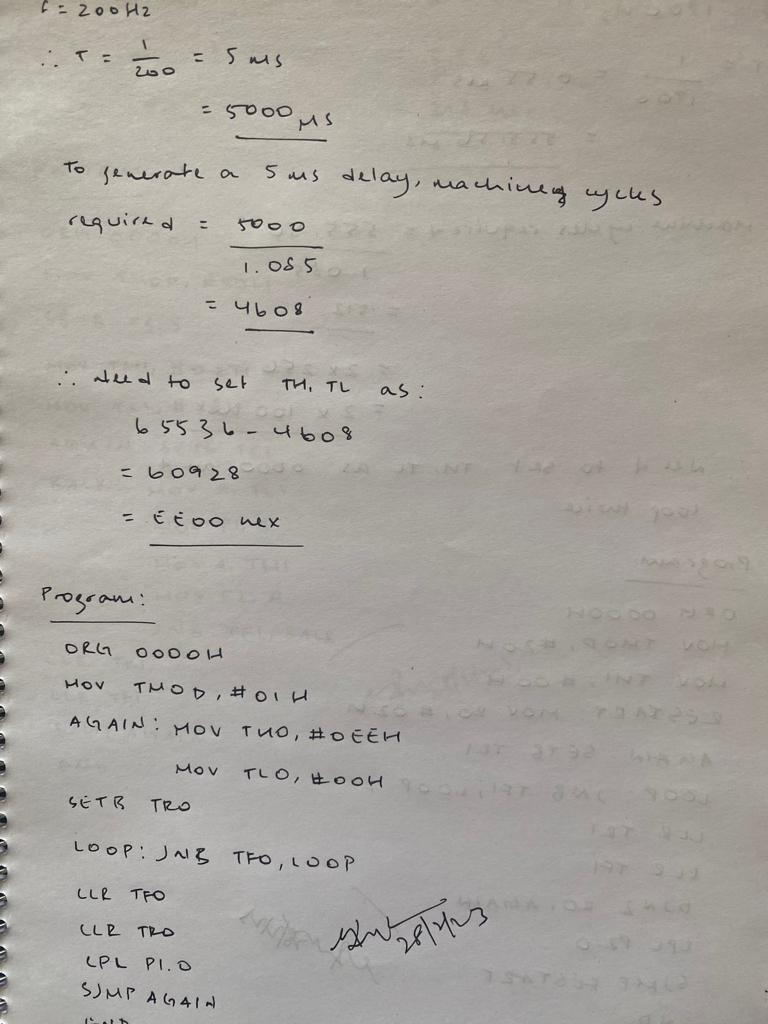 f = 200Hz
∴ T = 1/200 = 5 ms
= 5000 μs
To generate a 5 ms delay, machine cycles
required = 5000/1.085
= 4608
∴ Need to set TH, TL as:
65536 - 4608
= 60928
= EE00 hex
Program:
ORG 0000H
MOV TMOD, #01H
AGAIN: MOV TH0, #0EEH
MOV TL0, #00H
SETB TR0
LOOP: JNB TF0, LOOP
CLR TF0
CLR TR0
CPL P1.0
SJMP AGAIN
END